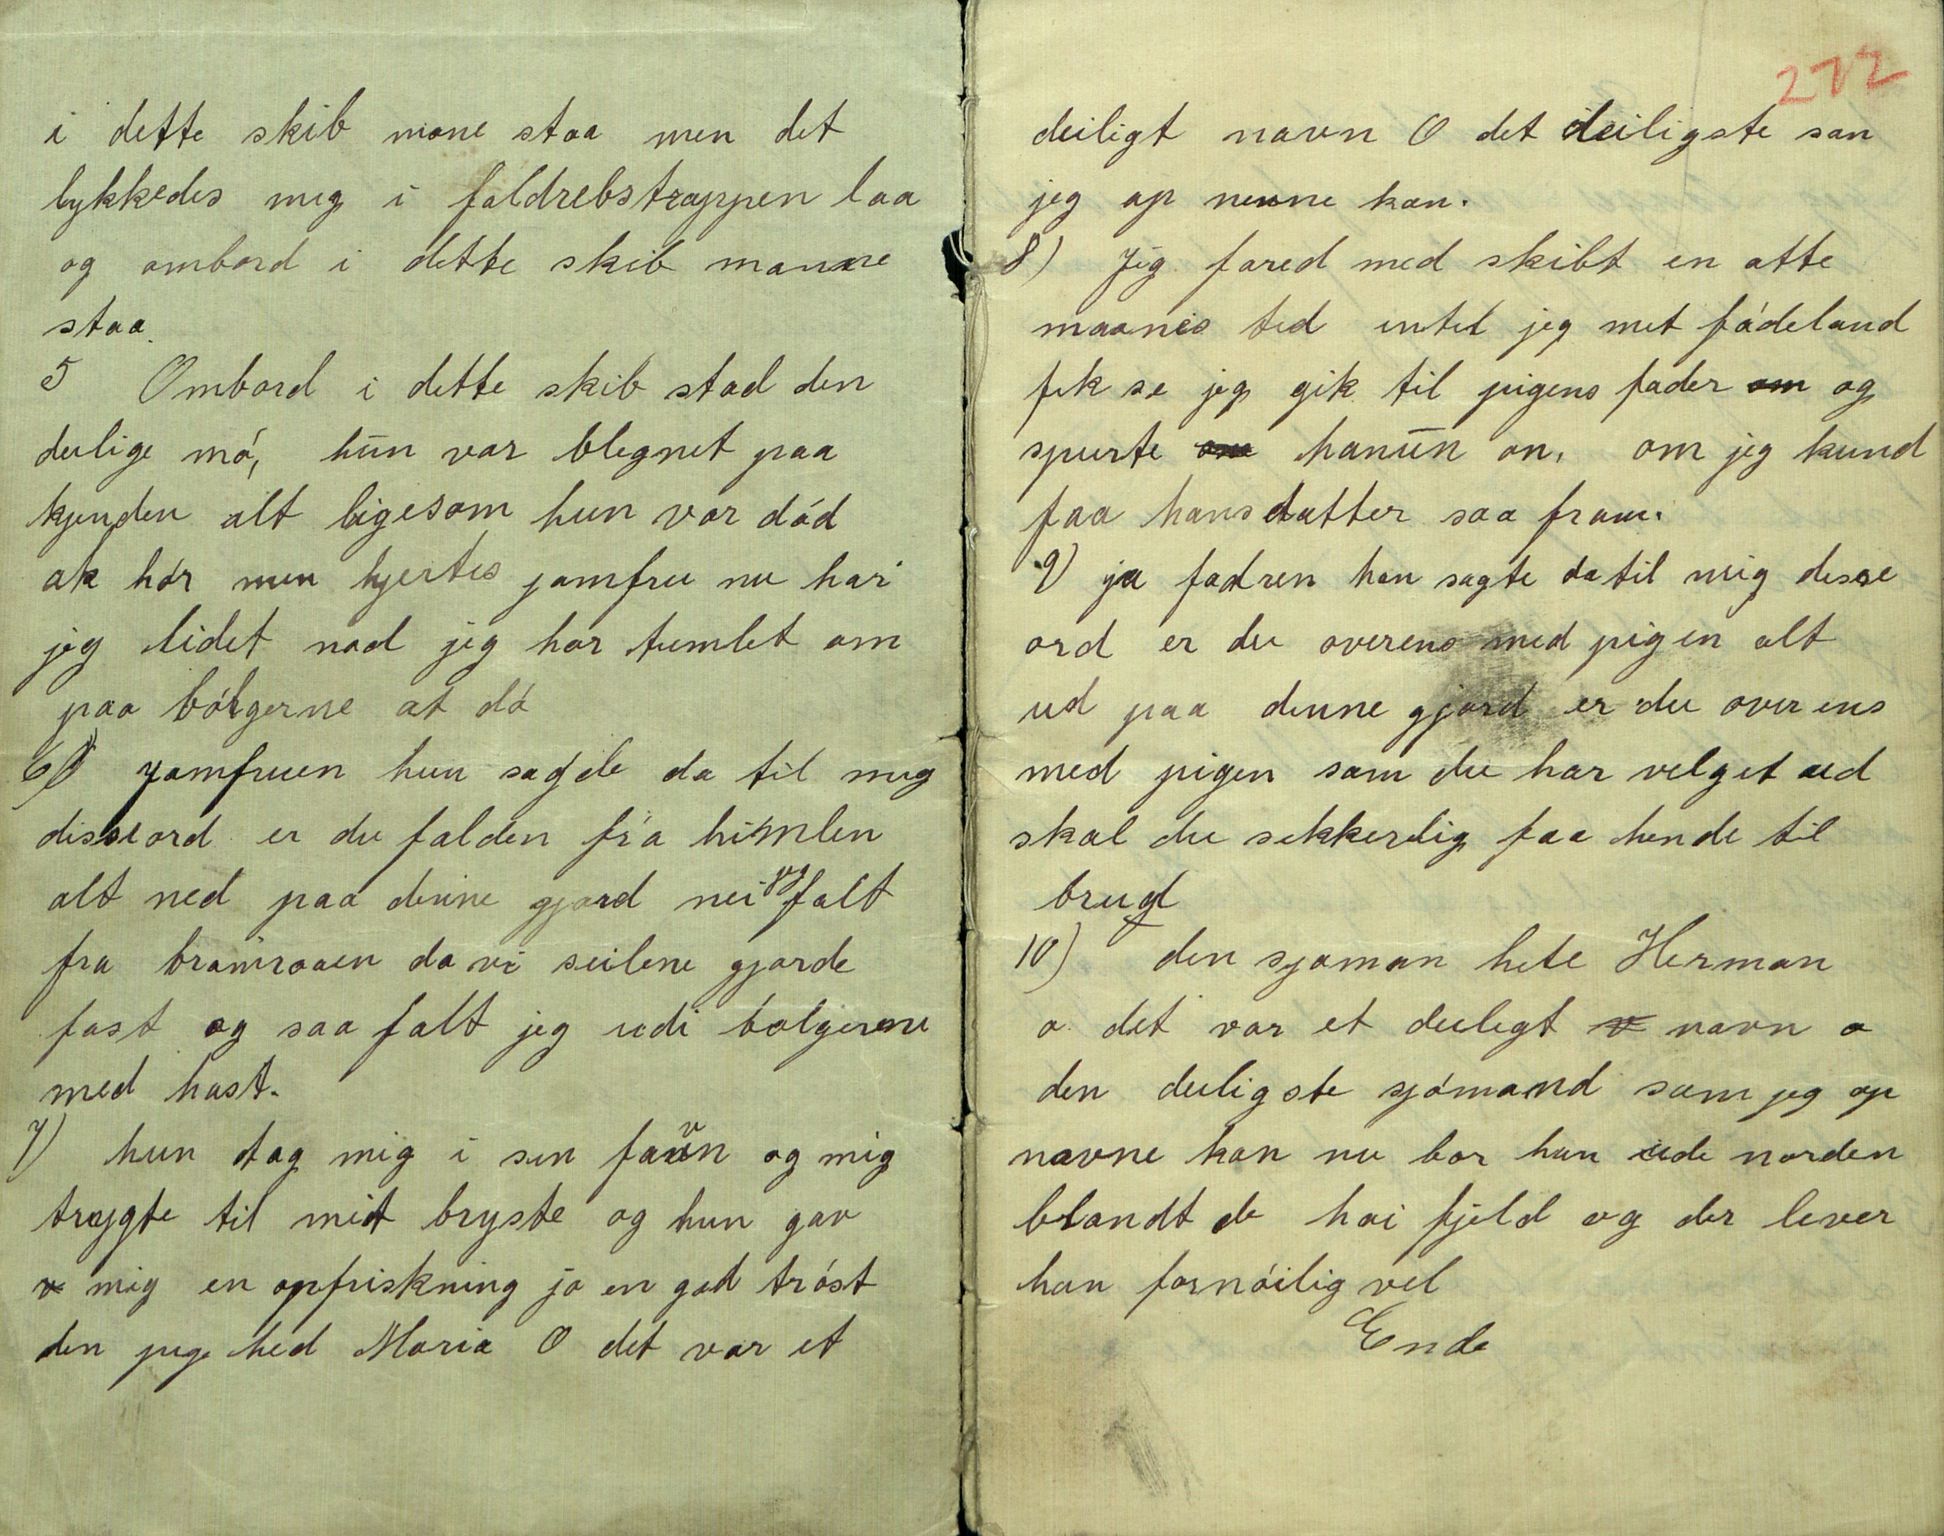 i dette skib mone staa men det
lykkedes mig i faldrebstrappen laa
og ombord i dette skib manne
staa.
5 Ombord i dette skib stod den
deilige mó, hūn var blegnet paa
kjenden alt ligesom hun var dód
ak hór min hjertes jomfru nu har
jeg lidet nod jeg har tumlet om
paa bólgerne at dó
6) Jomfruen hun sagde da til mig
disse ord er du falden fra himlen
alt ned paa denne gjord nei jeg falt
fra bramraaen da vi seilene gjorde
fast og saa falt jeg udi bolgerene
med hast.
7) hun tog mig i sin favn og mig
trygte til mit bryste og hun gav
mig en opfriskning ja en god tróst
den pige hed Maria O det var et
272
deiligt navn O det deiligste son
jeg op nevne kan.
8) Jeg fored med skibt en otte
maanes tid intil jeg mit fódeland
fik se jeg gik til pigens fader om og
spurte om hanūn on, om jeg kund
faa hans datter saa from.
9) ja fadren han sagte da til mig disse
ord er du overens med pigen alt
ud paa denne gjord er du over ens
med pigen som du har velget ud
skal du sekkerlig faa hende til
brud
10) den sjoman hete Herman
o det var et deiligt v navn o
den deiligste sjómand som jeg op
navne kan nu bor han ude norden
blandt de hoi fjeld og der lever
han fornóilig vel
Ende